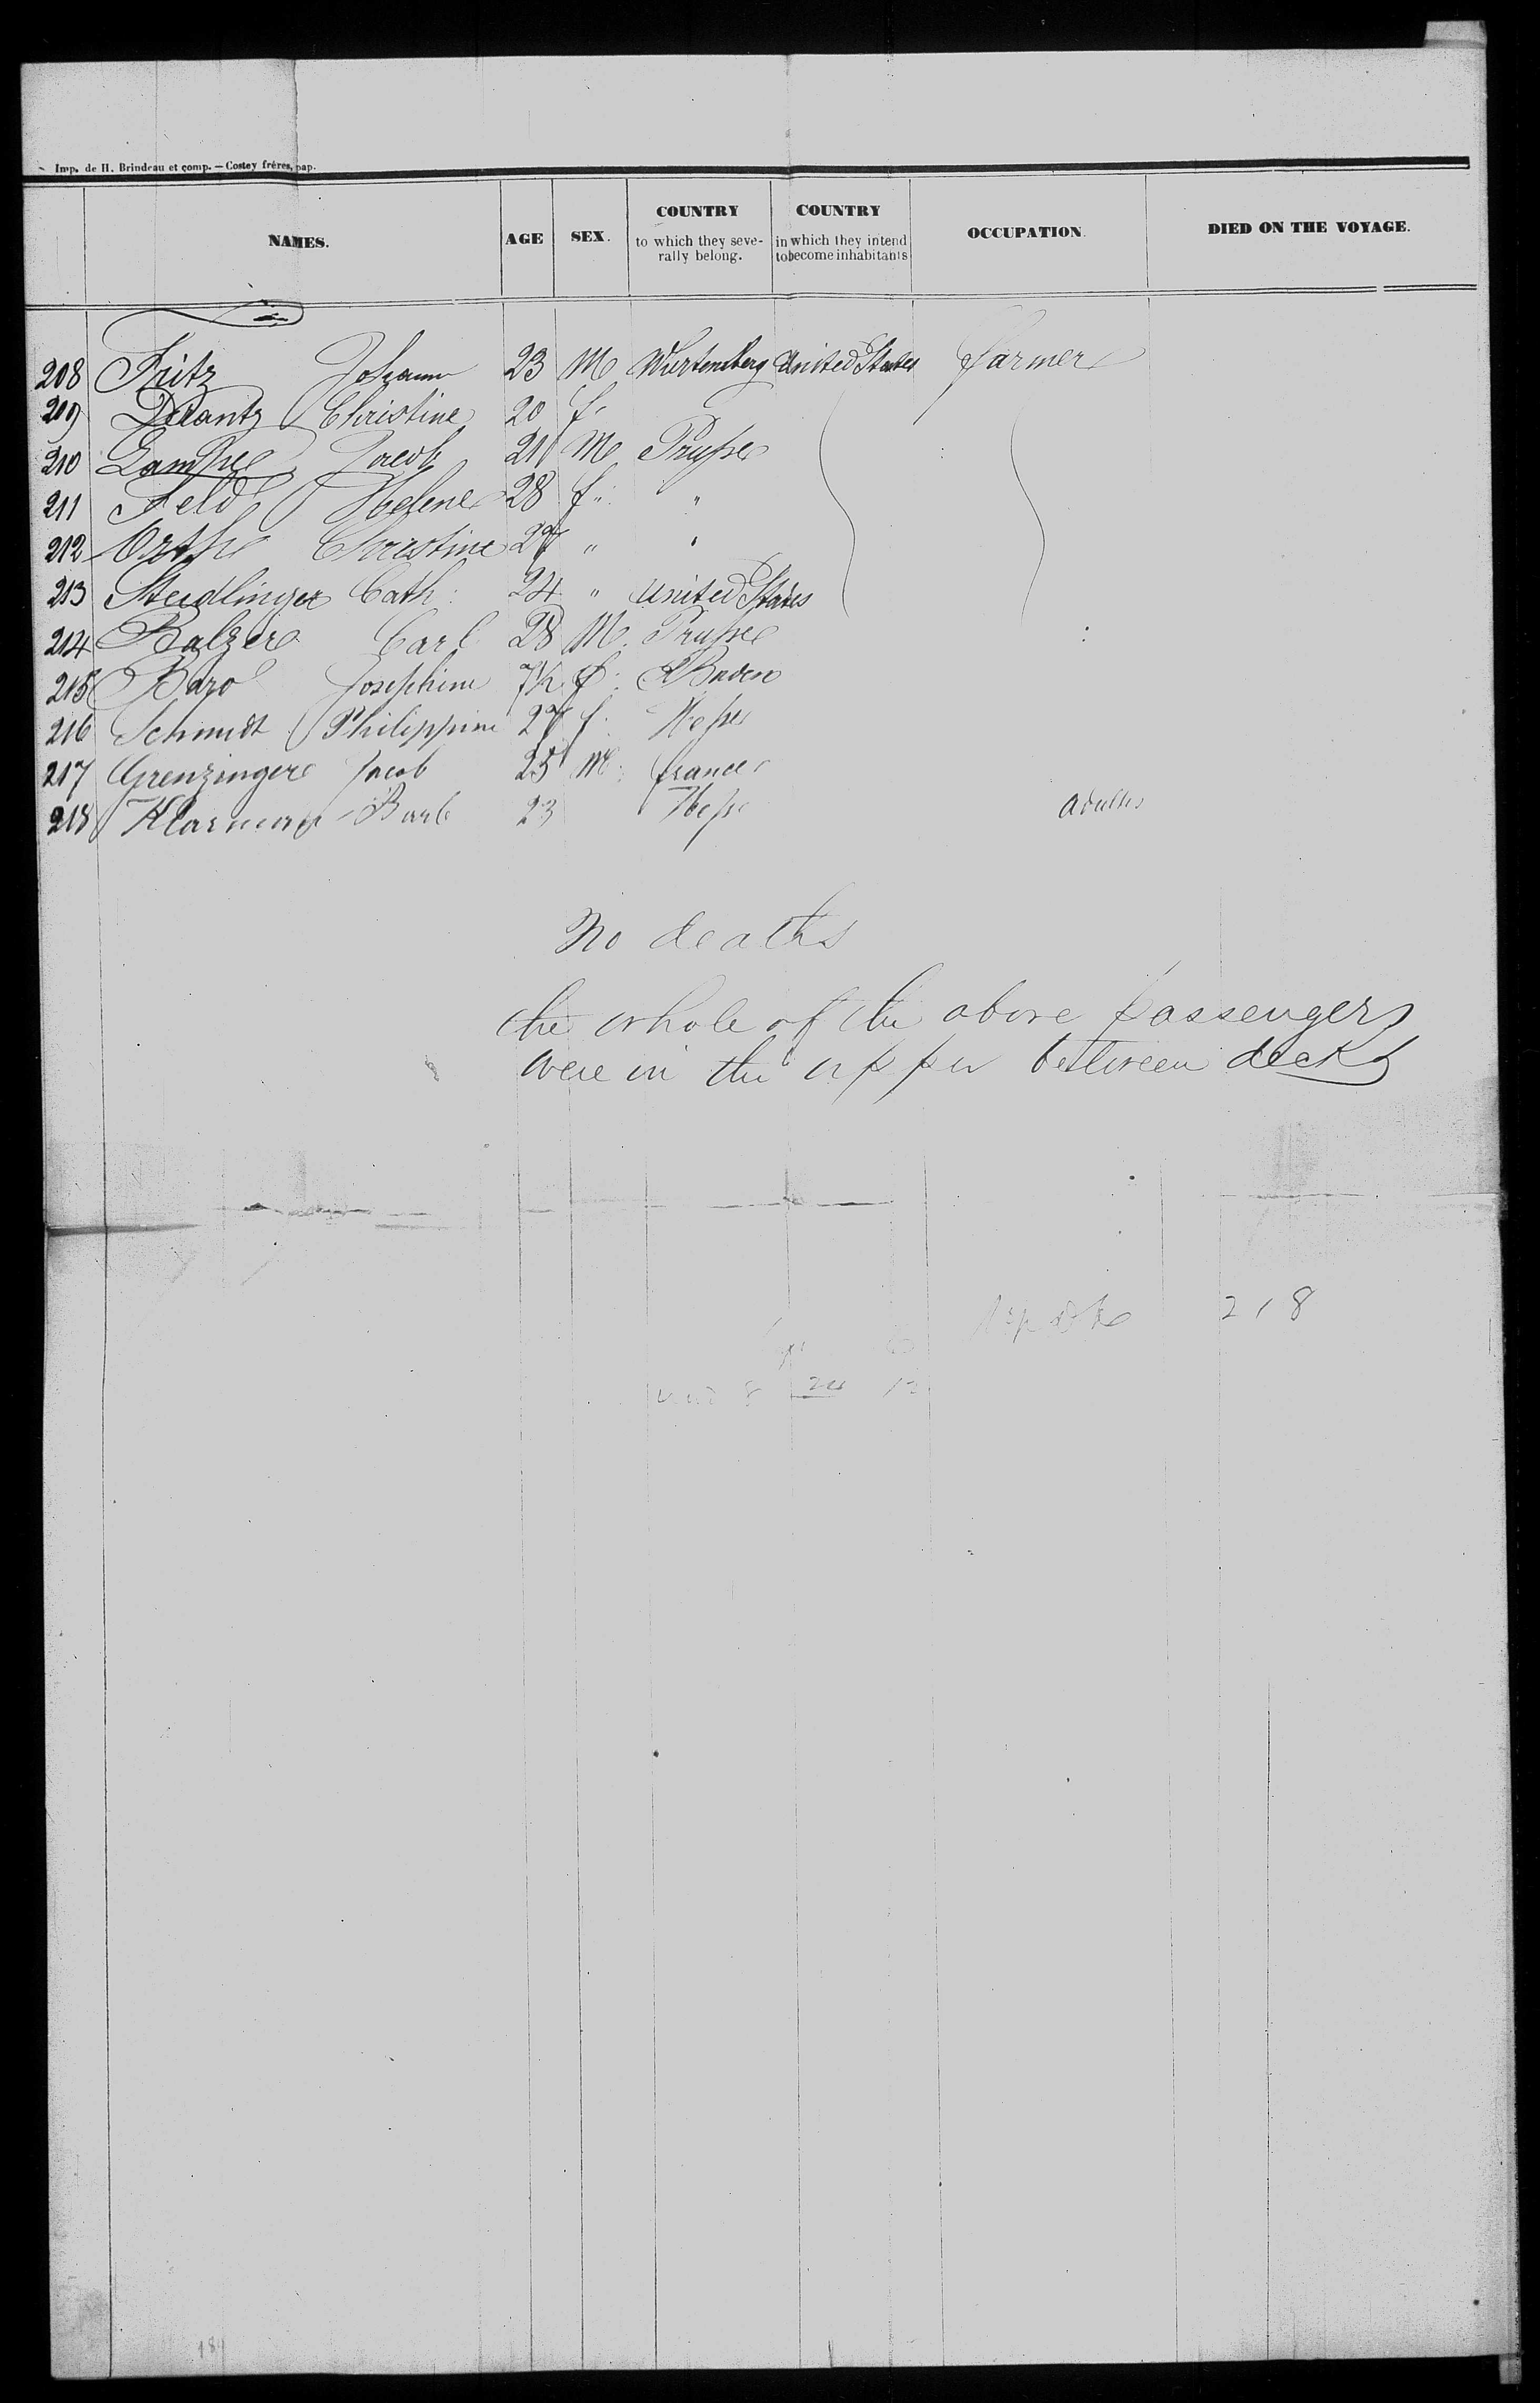 Imp. de H. Brindeau et comp. — Costey frères, pap.
NAMES. AGE SEX. COUNTRY to which they severally belong. COUNTRY in which they intend to become inhabitants OCCUPATION. DIED ON THE VOYAGE.
208 Fritz Johann 23 M Wurtemberg United States farmer
209 Christine 20 f.
210 Jacob 21 M Prusse
211 Feld Helene 28 f. "
212 Orth Christine " "
213 Steidlinger Cath: 24 " United States
214 Balzer Carl 28 M. Prusse
215 Josephine 7½ f. Baden
216 Schmidt Philippine 27 f. Hesse
217 Grenzinger Jacob 25 M. france
218 Barb 23 Hesse adults
No deaths
the whole of the above passengers
were in the upper between decks
218